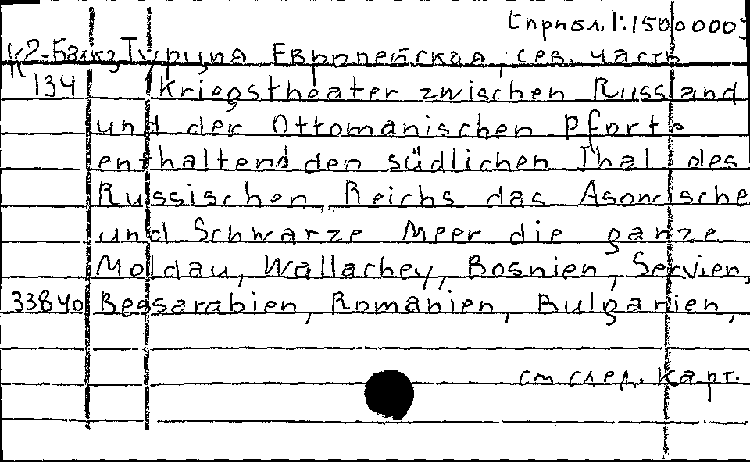 [приол. 1:1500000]
К2-Балк. Турция Европейская, сев. часть
134 Kriegstheater zwischen Russland
und der Ottomanischen Pforte
enthaltend den südlichen Thal des
Russischen Reichs das Asowische
und Schwarze Meer die ganze
Moldau, Wallachey, Bosnien, Servien,
33840 Bessarabien, Romanien, Bulgarien,
см след. карт.